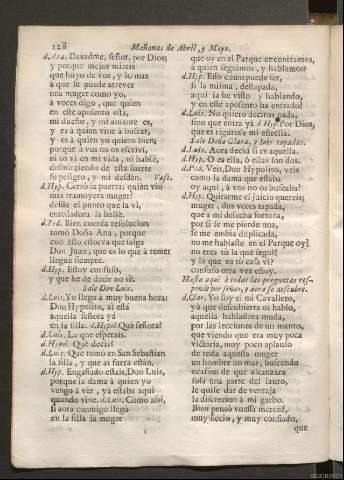 128
Mañanas de Abril, y Mayo.
d. Ana. Dexadme, señor, por Dios;
y porque mejor mireis
que huyo de vos, y lo mas
à que se puede atrever
una muger como yo,
à voces digo, que quien
en este aposento està,
mi dueño, y mi amante es,
y es à quien vine à buscar,
y es à quien yo quiero bien;
porque à vos no os escrivì,
ni os vì en mi vida, ni hablè,
desmintiendo de esta suerte
su peligro, y mi desdèn. Vase.
d. Hyp. Cerrò la puerta; quièn viò
mas tramoyera muger?
desde el punto que la vì,
enredadora la hallè.
d. Ped. Bien cuerda resolucion
tomò Doña Ana, porque
con esto estorva que salga
Don Juan, que es lo que à temer
lleguè siempre.
d. Hyp. Estoy confuso,
y què he de decir no sè.
Sale Don Luis.
d. Luis. Yo llego à muy buena hora:
Don Hypolito, aì està
aquella señora yà
en la silla. d. Hypol. Què señora?
d. Luis. La que esperais.
d. Hypol. Què decis?
d. Luis. Que tomò en San Sebastian
la silla, y que ai fuera están,
d. Hyp. Engañado estais, Don Luis,
porque la dama à quien yo
vengo à vèr, yà estaba aqui
quando vine. d. Luis. Como assi,
si aora conmigo llegò
en la silla la muger
que oy en el Parque encontramos,
à quien seguimos, y hablamos?
d. Hyp. Esso como puede ser,
si la misma, destapada,
aqui la he visto, y hablando,
y en este aposento ha entrado?
d. Luis. No quiero deciros nada,
sino que entra yà. d. Hyp. Por Dios,
que es rigurosa mi estrella.
Sale Doña Clara, y Inès tapadas.
d. Luis. Aora decid si es aquella.
d. Hyp. O es ella, ò ellas son dos.
d. Ped. Veis, Don Hypolito, veis
como la dama que estaba
oy aqui, à vos no os buscaba?
d. Hyp. Quitarme el juicio quereis;
muger, dos veces tapada,
que à mi desdicha fortuna,
por si se me pierde una,
se me embia duplicada,
no me hablaste en el Parque oy?
no eres tù la que seguì?
y la que en tu casa vì?
confuso otra vez estoy.
Hasta aqui à todas las preguntas res-
ponde por señas, y aora se descubre.
d. Clar. Yo soy el mi Cavallero,
yà que descubierta os hablo,
aquella habladora muda,
por las lecciones de un manto,
que viendo que era muy poca
victoria, muy poco aplauso
de toda aquesta muger
un hombre no mas, buscando
ocasion de que alcanzara
sola una parte del lauro,
le quise dàr de ventaja
la discrecion à mi garbo.
Bien pensò vuessa merced,
muy necio, y muy confiado,
que